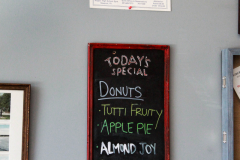 TODAY'S
SPECIAL
DONUTS
- TUTTI FRUITY
- APPLE PIE
- ALMOND JOY